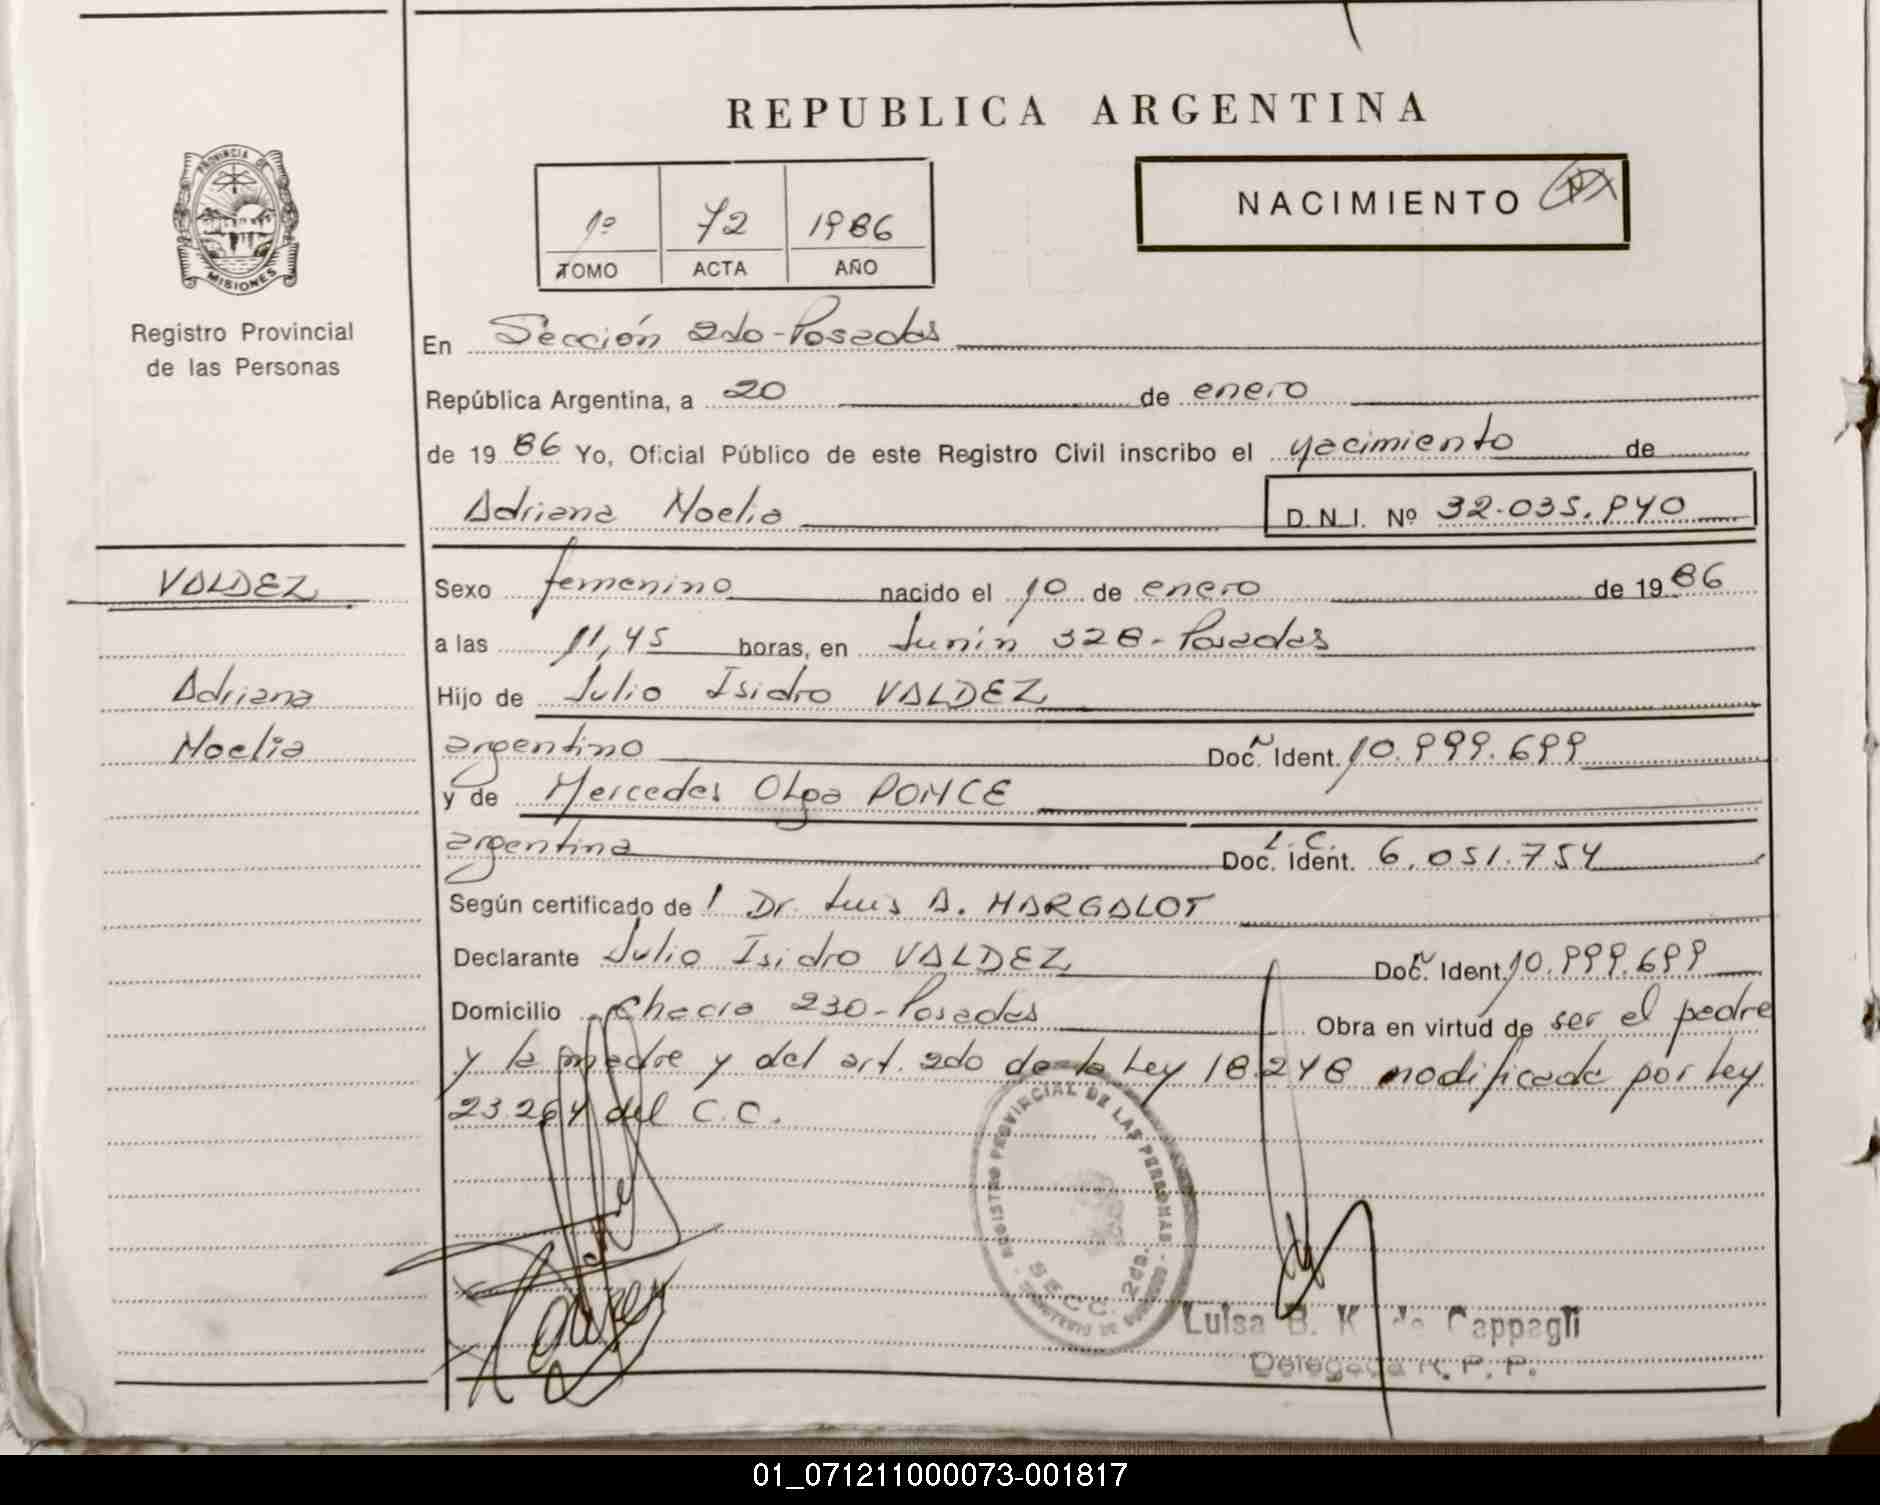 REPUBLICA ARGENTINA
PROVINCIA DE
MISIONES
Registro Provincial
de las Personas
1º 72 1986
TOMO ACTA AÑO
NACIMIENTO
En Sección 2do-Posadas
República Argentina, a 20 de enero
de 1986 Yo, Oficial Público de este Registro Civil inscribo el nacimiento de
Adriana Noelia D.N.I. Nº 32.035.940
VALDEZ
Adriana
Noelia
Sexo femenino nacido el 10 de enero de 1986
a las 11,45 horas, en Junín 328-Posadas
Hijo de Julio Isidro VALDEZ
argentino Doc. Ident. 10.999.699
y de Mercedes Olga PONCE
argentina L.C. Doc. Ident. 6.051.754
Según certificado de Dr. Luis A. MARGALOT
Declarante Julio Isidro VALDEZ Doc. Ident. 10.999.699
Domicilio 230-Posadas Obra en virtud de ser el padre
y la madre y del art. 2do de la Ley 18.248 modificada por Ley
23.264 del C.C.
REGISTRO PROVINCIAL DE LAS PERSONAS
SECC. 2da.
Luisa B. K. de Cappagli
Delegada R.P.P.
01_071211000073-001817